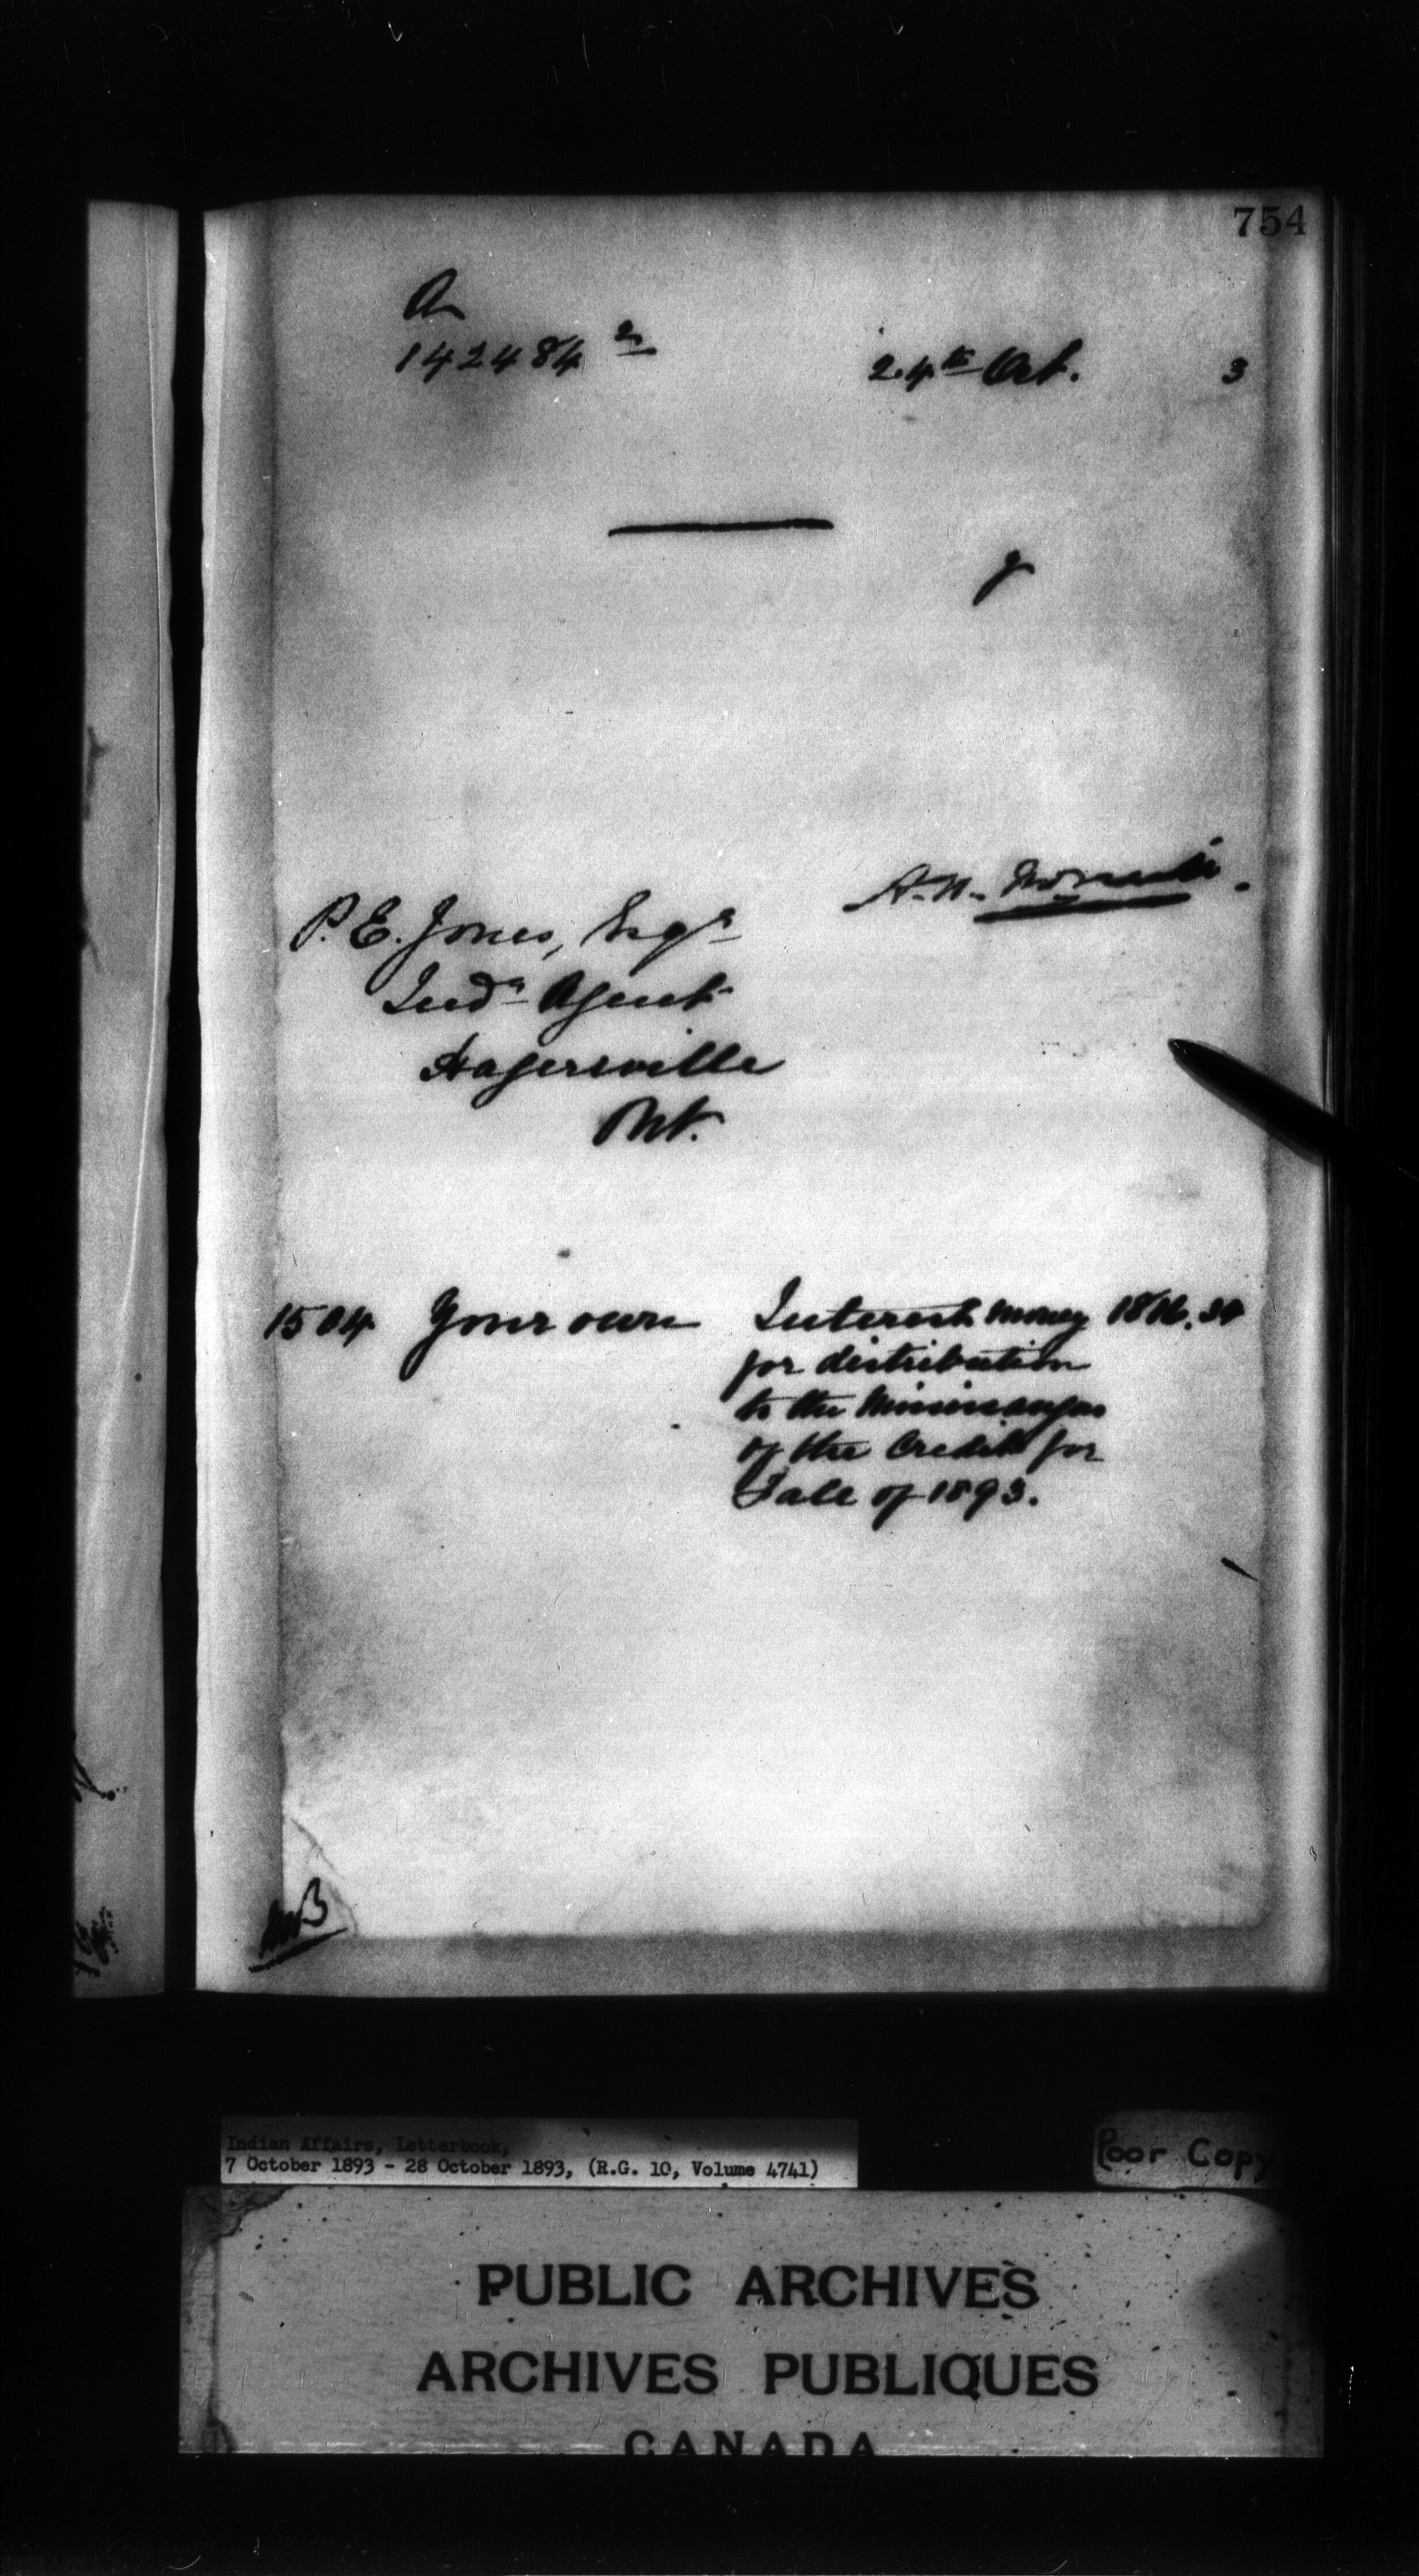 754
A
142484 2
24th Oct. 3
y
A. N. McNeill.
P. E. Jones, Esqr
Indn Agent
Hagersville
Ont.
1504 Your own Interest money
for distribution
to the Mississaugas
of the Credit for
Fall of 1893.
Indian Affairs, Letterbook,
7 October 1893 - 28 October 1893, (R.G. 10, Volume 4741)
Poor Copy
PUBLIC ARCHIVES
ARCHIVES PUBLIQUES
CANADA